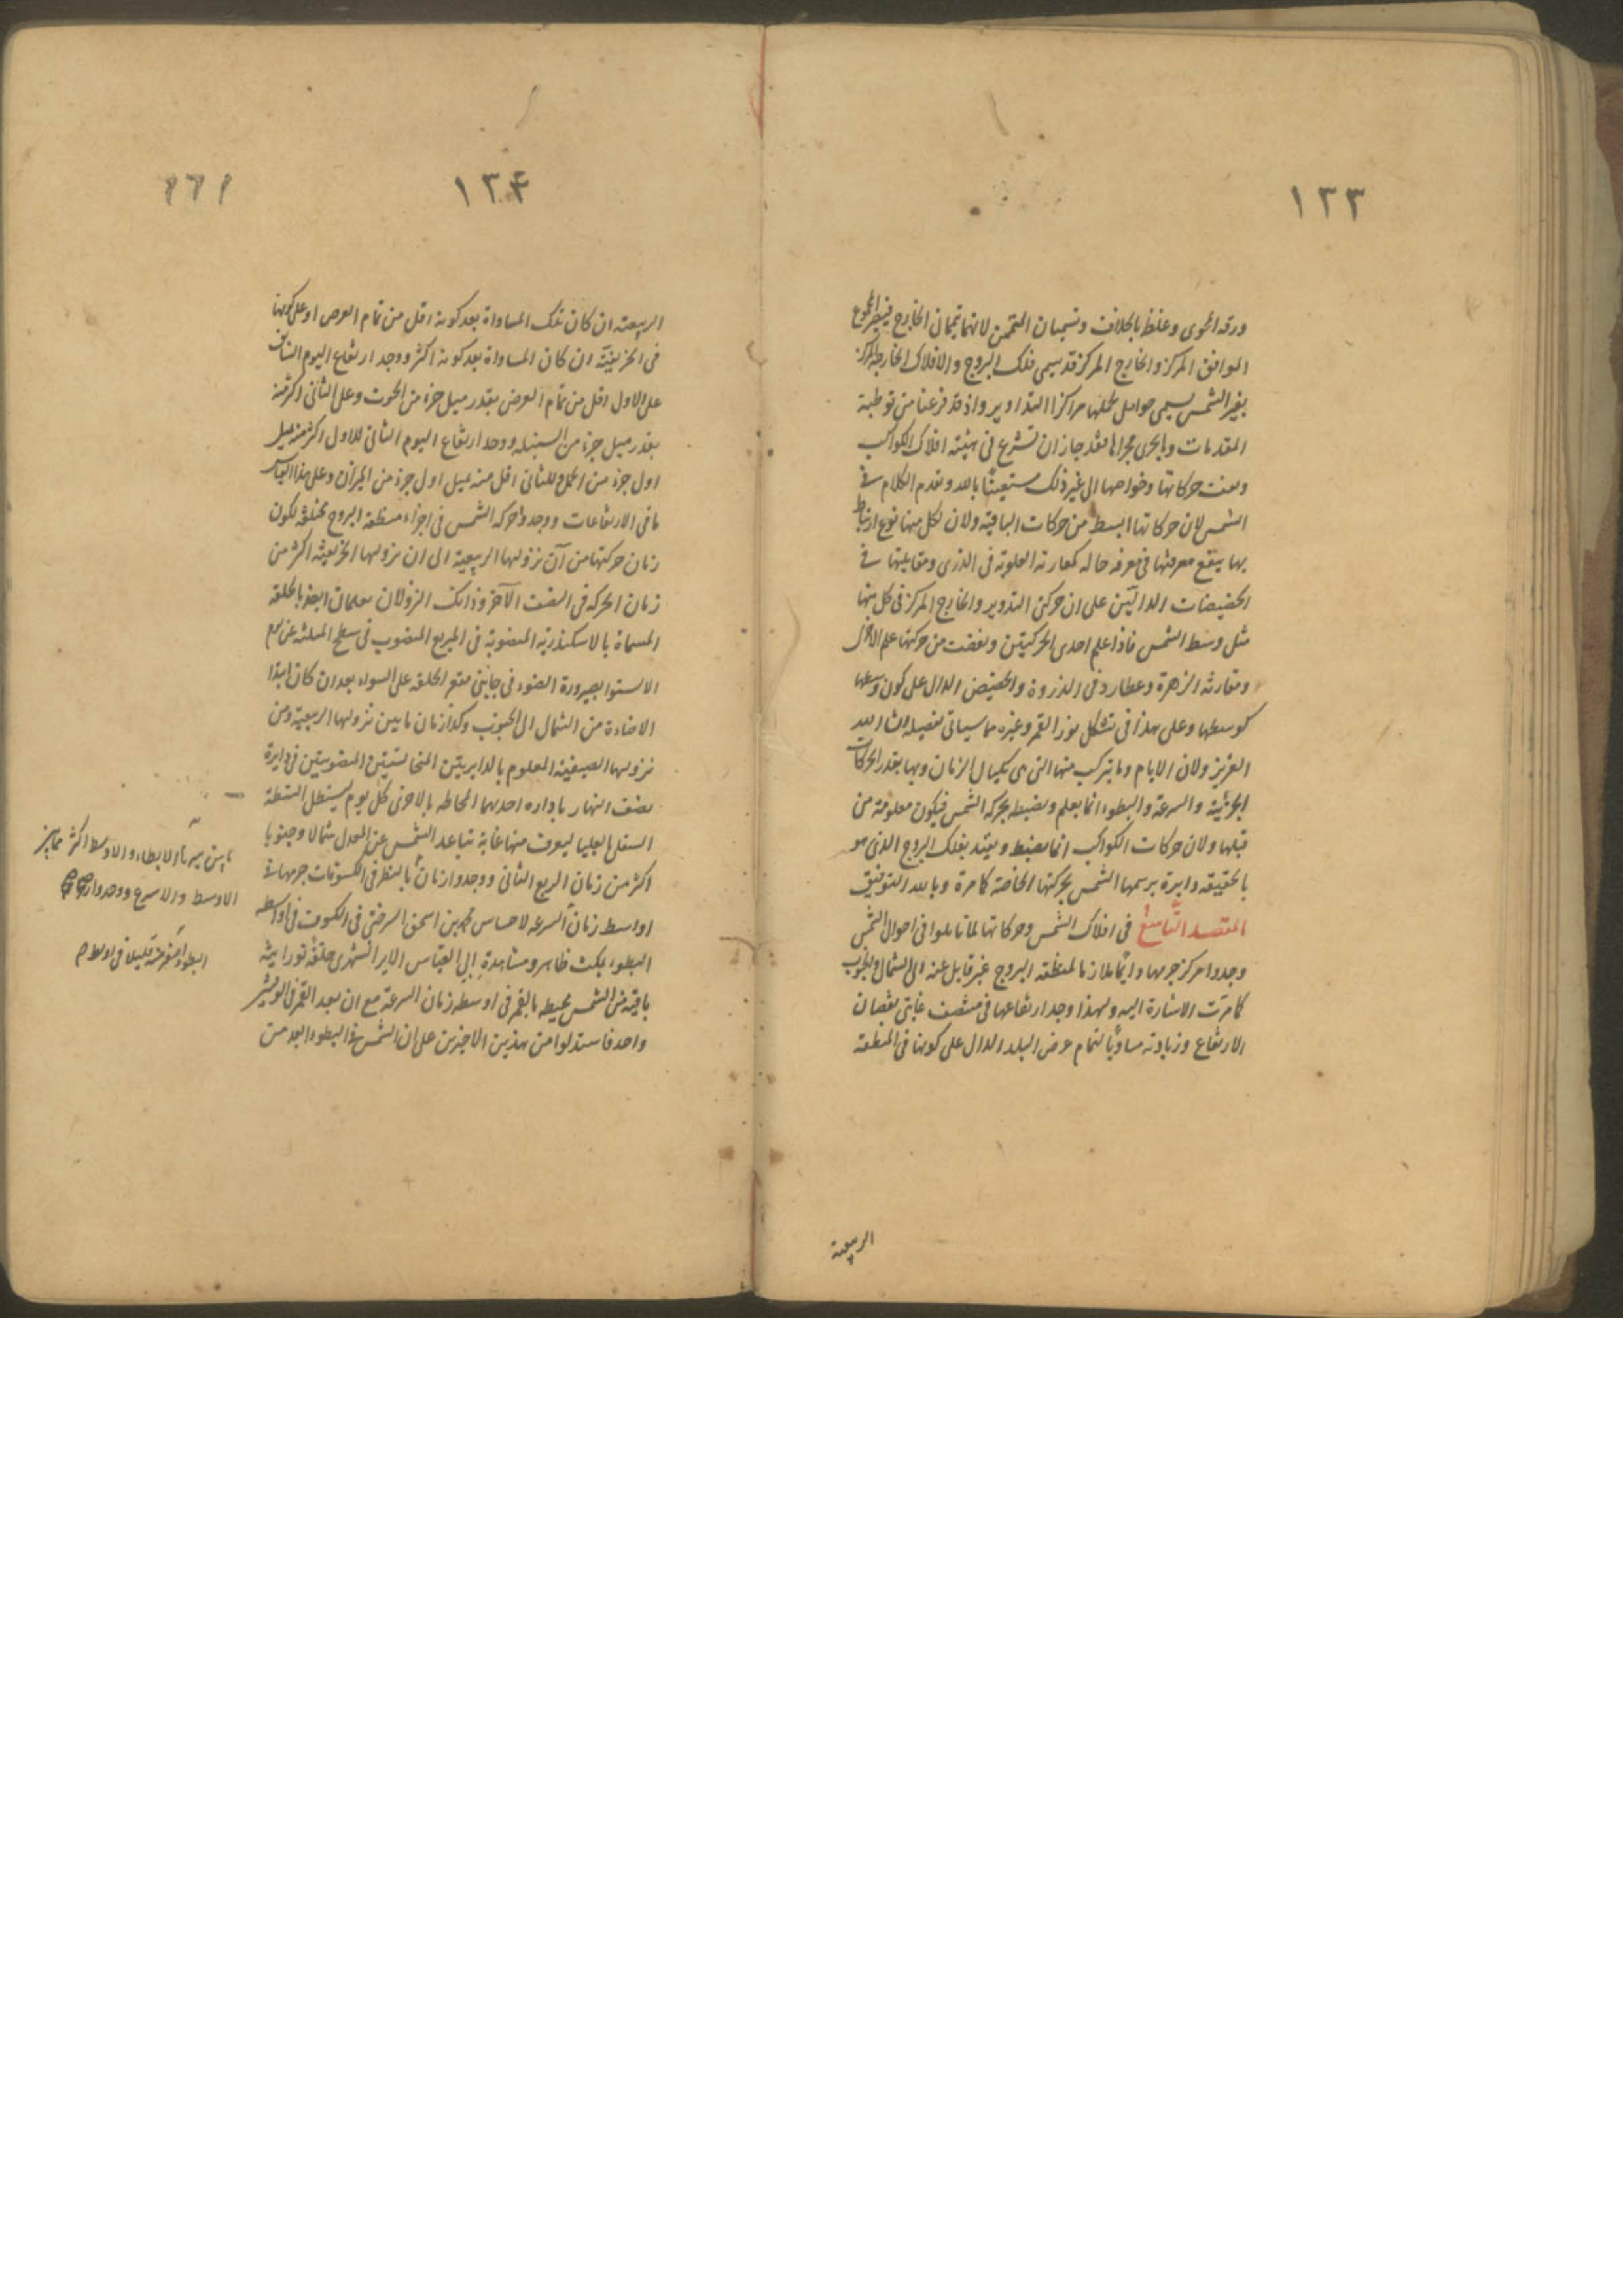 ١٢٣
ورقه المحوى وغلظ بالخلاف وتسميان المتممين لانهما يتممان الخارج فيصير المجموع
الموافق المركز والخارج المركز قد يسمى فلك البروج والافلاك الخارجة المركز
بغير الشمس يسمى حوامل لحملها مراكز التداوير واذ قد فرغنا من توطية
المقدمات وما يجرى مجراها فقد جاز ان نشرع فى هيئة افلاك الكواكب
وبعث حركاتها وخواصها الى غير ذلك مستعينا بالله ونقدم الكلام فى
الشمس لان حركاتها ابسط من حركات الباقية ولان لكل منها نوع ارتباط
بها ينفع معرفتها فى معرفه حاله كمقارنة العلوية فى الذرى ومقابلتها فى
الحضيضات الدالتين على ان حركتى التدوير والخارج المركز فى كل منها
مثل وسط الشمس فاذا علم احدى الحركتين ونقصت من حركتها علم الاخرى
ومقارنة الزهرة وعطارد فى الذروة والحضيض الدال على كون وسطهما
كوسطها وعلى هذا فى تشكل نور القمر وغيره مما سياتى تفصيله ان شا الله
العزيز ولان الايام وما يتركب منها التى هى مكيال الزمان وبها يقدر الحركات
الجزئية والسرعة والبطوء انما يعلم ويضبط بحركة الشمس فيكون معلومة من
قبلها ولان حركات الكواكب انما يضبط ويقيد بفلك البروج الذى هو
بالحقيقه دايرة يرسمها الشمس بحركتها الخاصة كما مرة وبالله التوفيق
المقصد التاسع فى افلاك الشمس وحركاتها لما تاملوا فى احوال الشمس
وجدوا مركز جرمها دائما ملازما لمنطقة البروج غير مايل عنه الى الشمال والجنوب
كما مرت الاشارة اليه ولهذا وجد ارتفاعها فى منتصف غايتى نقصان
الارتفاع وزيادته مساويا لتمام عرض البلد الدال على كونها فى المنطقة
الربيعية
١٢۴
١٦١
الربيعية ان كان تلك المساواة بعد كونه اقل من تمام العرض او على كونها
فى الخريفية ان كان المساواة بعد كونه اكثر ووجد ارتفاع اليوم السابق
على الاول اقل من تمام العرض بقدر ميل جزء من الحوت وعلى الثانى اكثر منه
بقدر ميل جزء من السنبله ووجد ارتفاع اليوم الثانى للاول اكثر منه بميل
اول جزء من الحمل وللثانى اقل منه بميل اول جزء من الميزان وعلى هذا القياس
ما فى الارتفاعات ووجدوا حركه الشمس فى اجزاء منطقة البروج مختلفة لكون
زمان حركتها من آن نزولها الربيعية الى ان نزولها الخريفية اكثر من
زمان الحركه فى النصف الآخر وذانك النزولان يعلمان ايضا بالحلقة
المسماة بالاسكندرية المنصوبة فى المربع المنصوب فى سطح
الاستوا بصيرورة الضوء فى جانبى مقعر الحلقه على السواء بعد ان كان ابتدا
الاضاءة من الشمال الى الجنوب وكذا زمان ما بين نزولها الربيعية ومن
نزولها الصيفية المعلوم بالدايرتين المتحاستين المنصوبتين فى دايرة
نصف النهار بادارة احديهما المحاطه بالاخرى كل يوم ليستظل النقطة
السفلى بالعليا ليعرف منها غاية تباعد الشمس عن المعدل شمالا وجنوبا
اكثر من زمان الربع الثانى ووجدوا زمان بالنظر فى الكسوفات جرمها فى
اواسط زمان السرعه لاحساس محمد بن اسحق السرخسى فى الكسوف فى اواسطه
البطوء بمكث ظاهر ومشاهدة ابى العباس الايرانشهرى حلقة نورانية
باقية من الشمس محيطه بالقمر فى اوسطه زمان السرعة مع ان بعد القمر فى
واحد فاستدلوا من هذين الاخيرين على ان الشمس فى البطوء ابعد من
ما بين الابطاء والاوسط اكثر مما بين
الاوسط والاسرع ووجدوا
البطوء اصغر منه قليلا فى اوسط